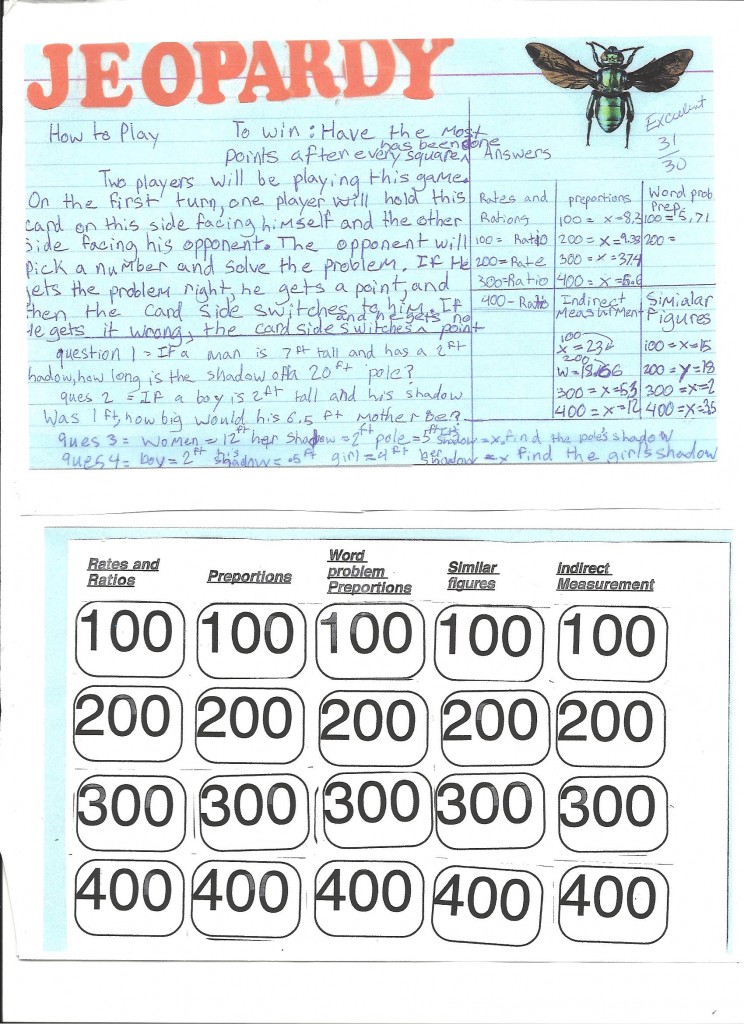 JEOPARDY
How to Play To win: Have the most
points after every square has been done
Two players will be playing this game.
On the first turn, one player will hold this
card on this side facing himself and the other
side facing his opponent. The opponent will
pick a number and solve the problem. If He
gets the problem right, he gets a point, and
then the card side switches to him. If
He gets it wrong, and he gets no point the card side switches
question 1 = If a man is 7ft tall and has a 2ft
shadow, how long is the shadow of a 20ft pole?
ques 2 = If a boy is 2ft tall and his shadow
Was 1ft, how big would his 6.5 ft Mother Be?
ques 3 = Women = 12ft her shadow = 2ft pole = 5ft shadow = x, find the pole's shadow
ques 4 = boy = 2ft his shadow = .5ft girl = 4ft her shadow = x find the girl's shadow
Excellent
31
30
Answers
Rates and
Rations
100 = Ratio
200 = Rate
300 = Ratio
400 - Ratio
preportions
100 = x = 8.3
200 = x = 9.33
300 = x = 37.4
400 = x = 5.6
Word prob
Prep.
100 = 5.71
200 =
Indirect
Measurment
100
x = 23
200
w = 18.66
300 = x = 53
400 = x = 12
Simialar
figures
100 = x = 15
200 = y = 18
300 = x = 2
400 = x = 35
Rates and
Ratios
Preportions
Word
problem
Preportions
Similar
figures
Indirect
Measurement
100 100 100 100 100
200 200 200 200 200
300 300 300 300 300
400 400 400 400 400